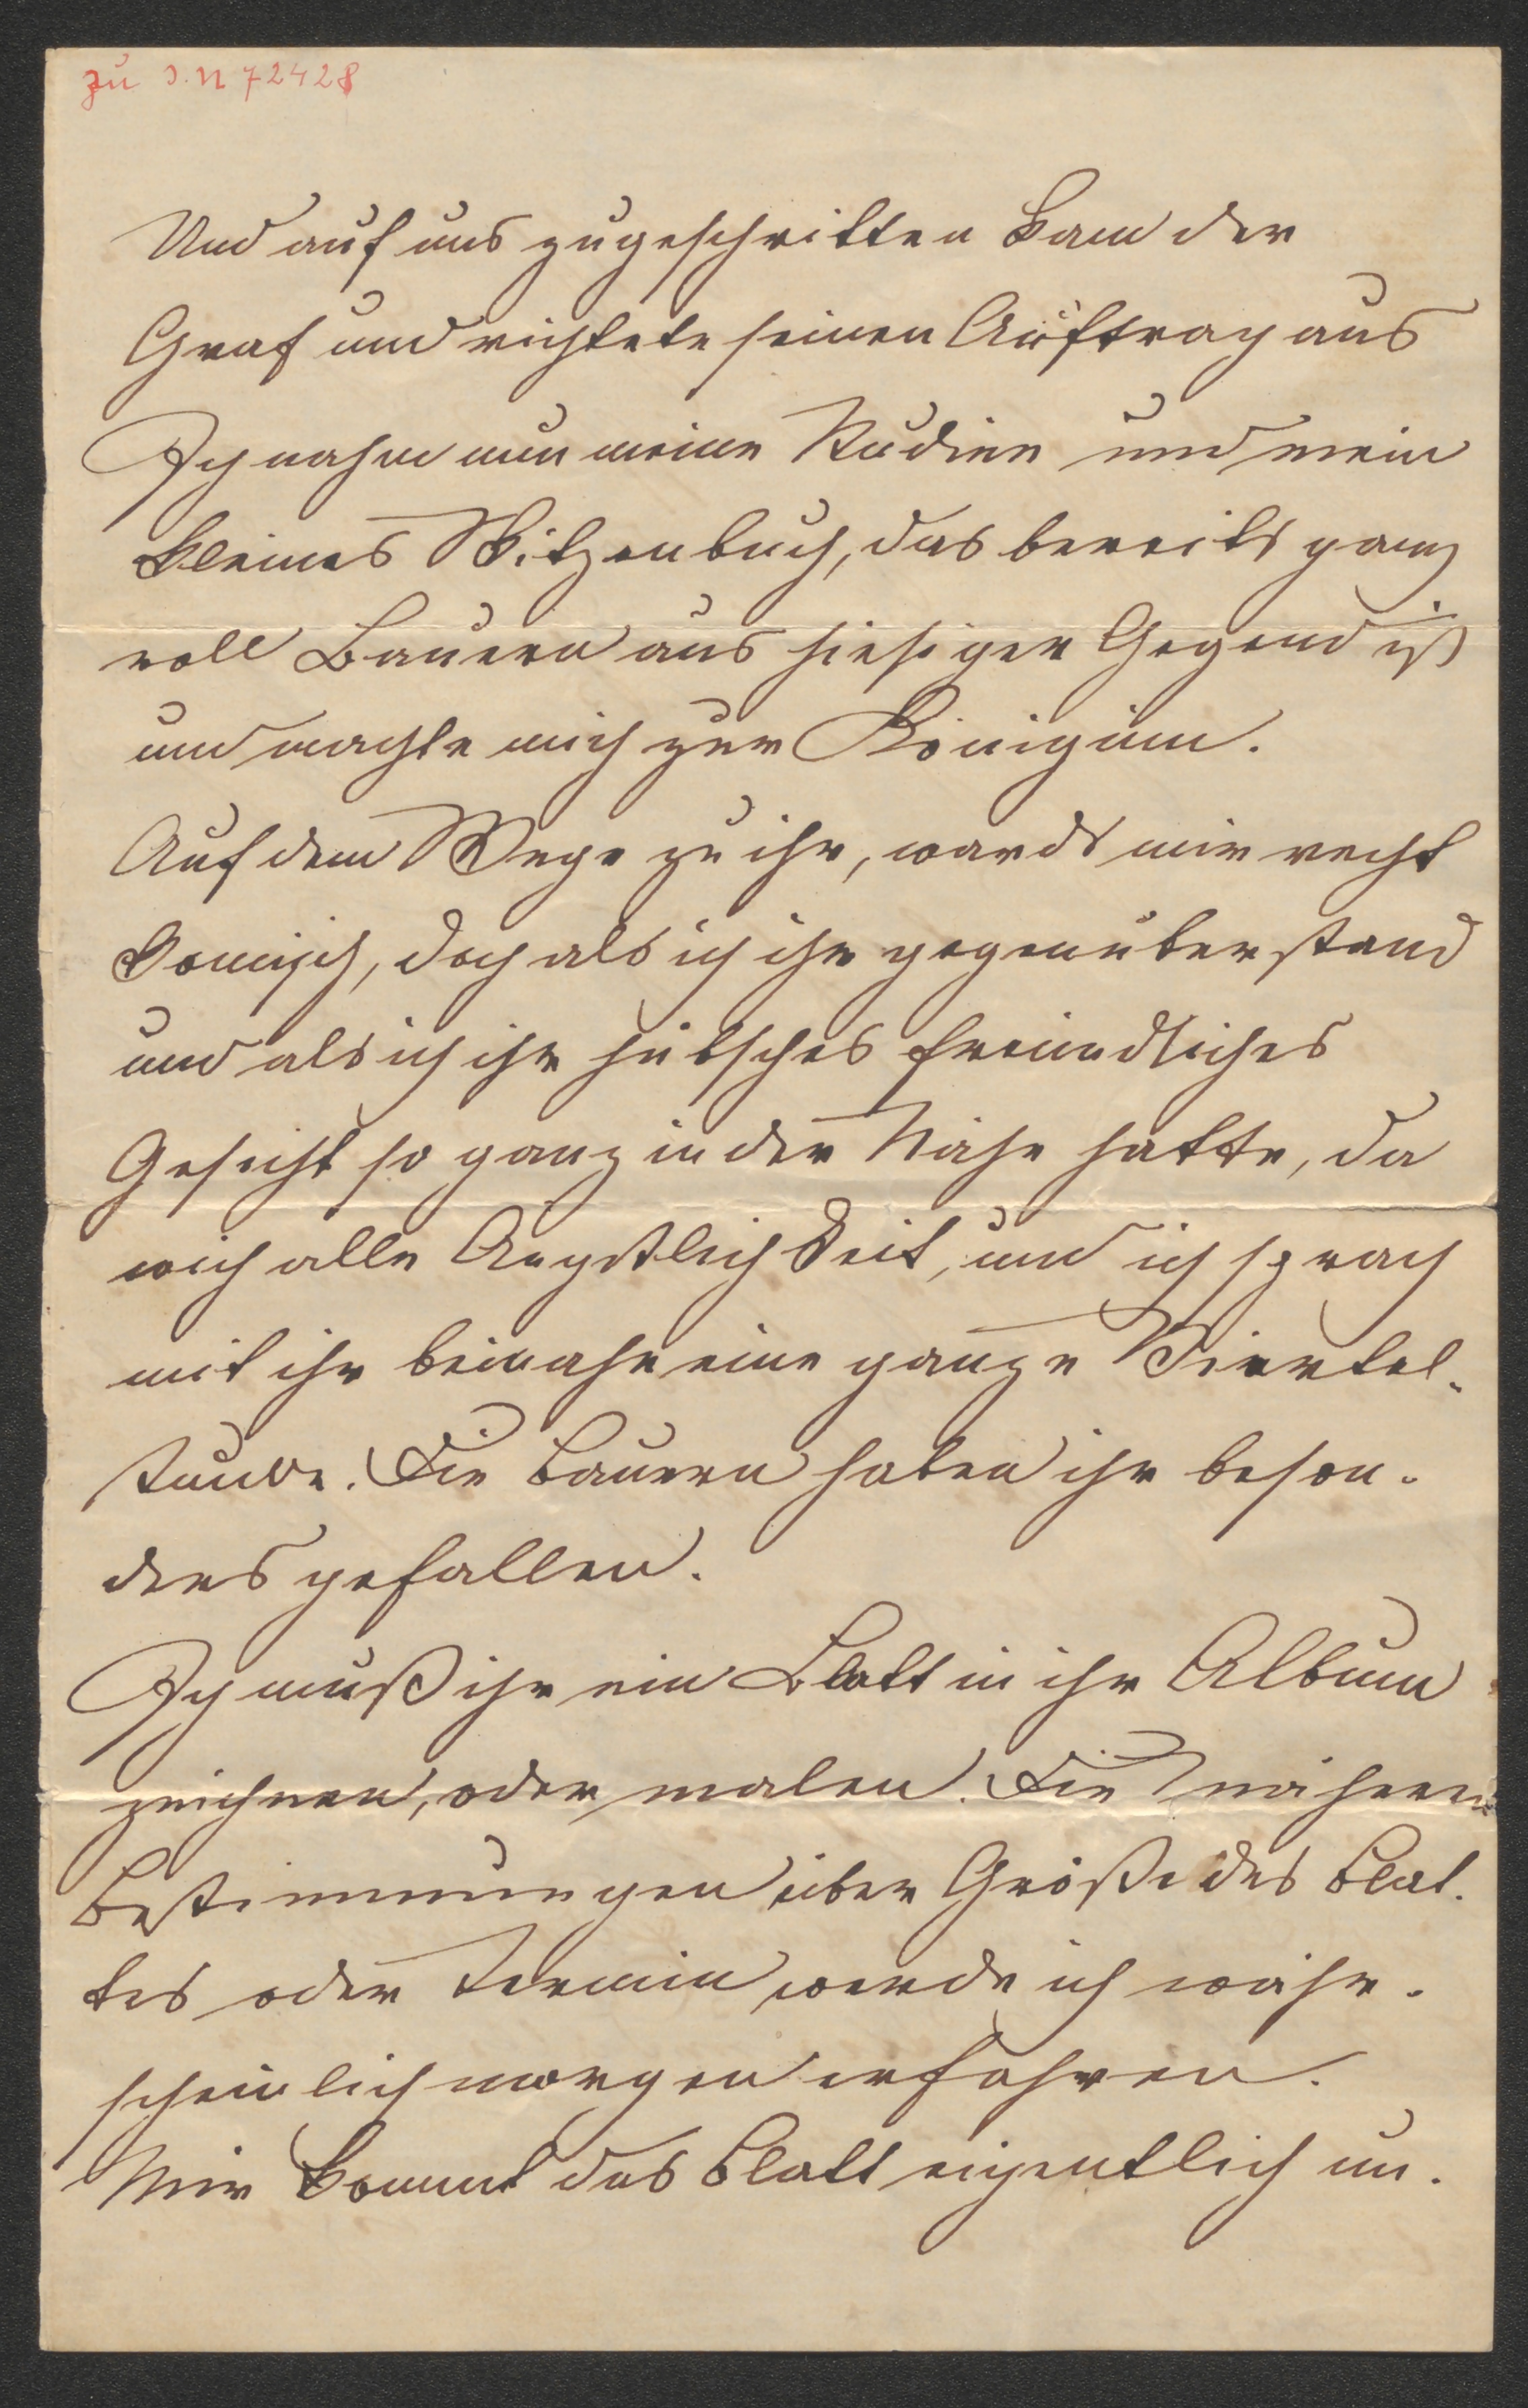 zu I.N 72428
Und auf uns zugeschritten kam der
Graf und richtete seinen Auftrag aus
Ich nahm nun meine Studien und mein
kleines Skitzenbuch, das bereits ganz
voll Bauern aus hiesiger Gegend ist
und machte mich zur Königinn.
Auf dem Wege zu ihr, wards mir recht
komisch, doch als ich ihr gegenüberstand
und als ich ihr hübsches freundliches
Gesicht so ganz in der Nähe hatte, da
wich alle Aengstlichkeit, und ich sprach
mit ihr beinahe eine ganze Viertel-
stunde. Die Bauern haben ihr beson-
ders gefallen.
Ich muß ihr ein Blatt in ihr Album
zeichnen, oder malen. Die näheren
Bestimmungen über Größe des Blat-
tes oder Termin werde ich wahr-
scheinlich morgen erfahren.
Mir kommt das Blatt eigentlich un-